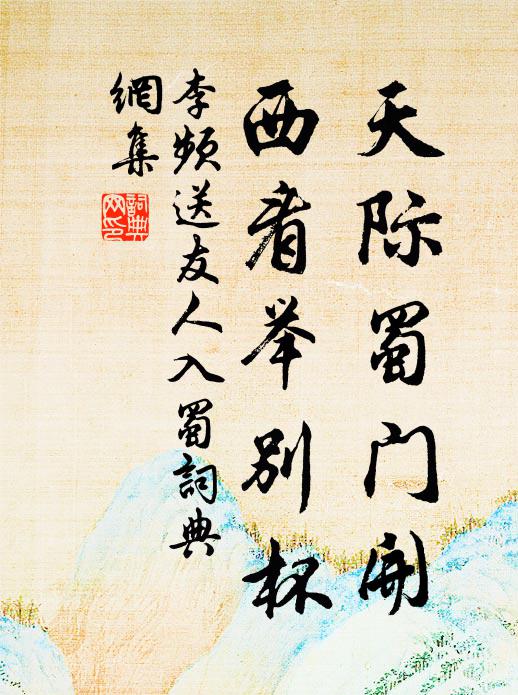 天际蜀门开
西看举别杯
李频送友人入蜀詞典
網集
詞典
网印